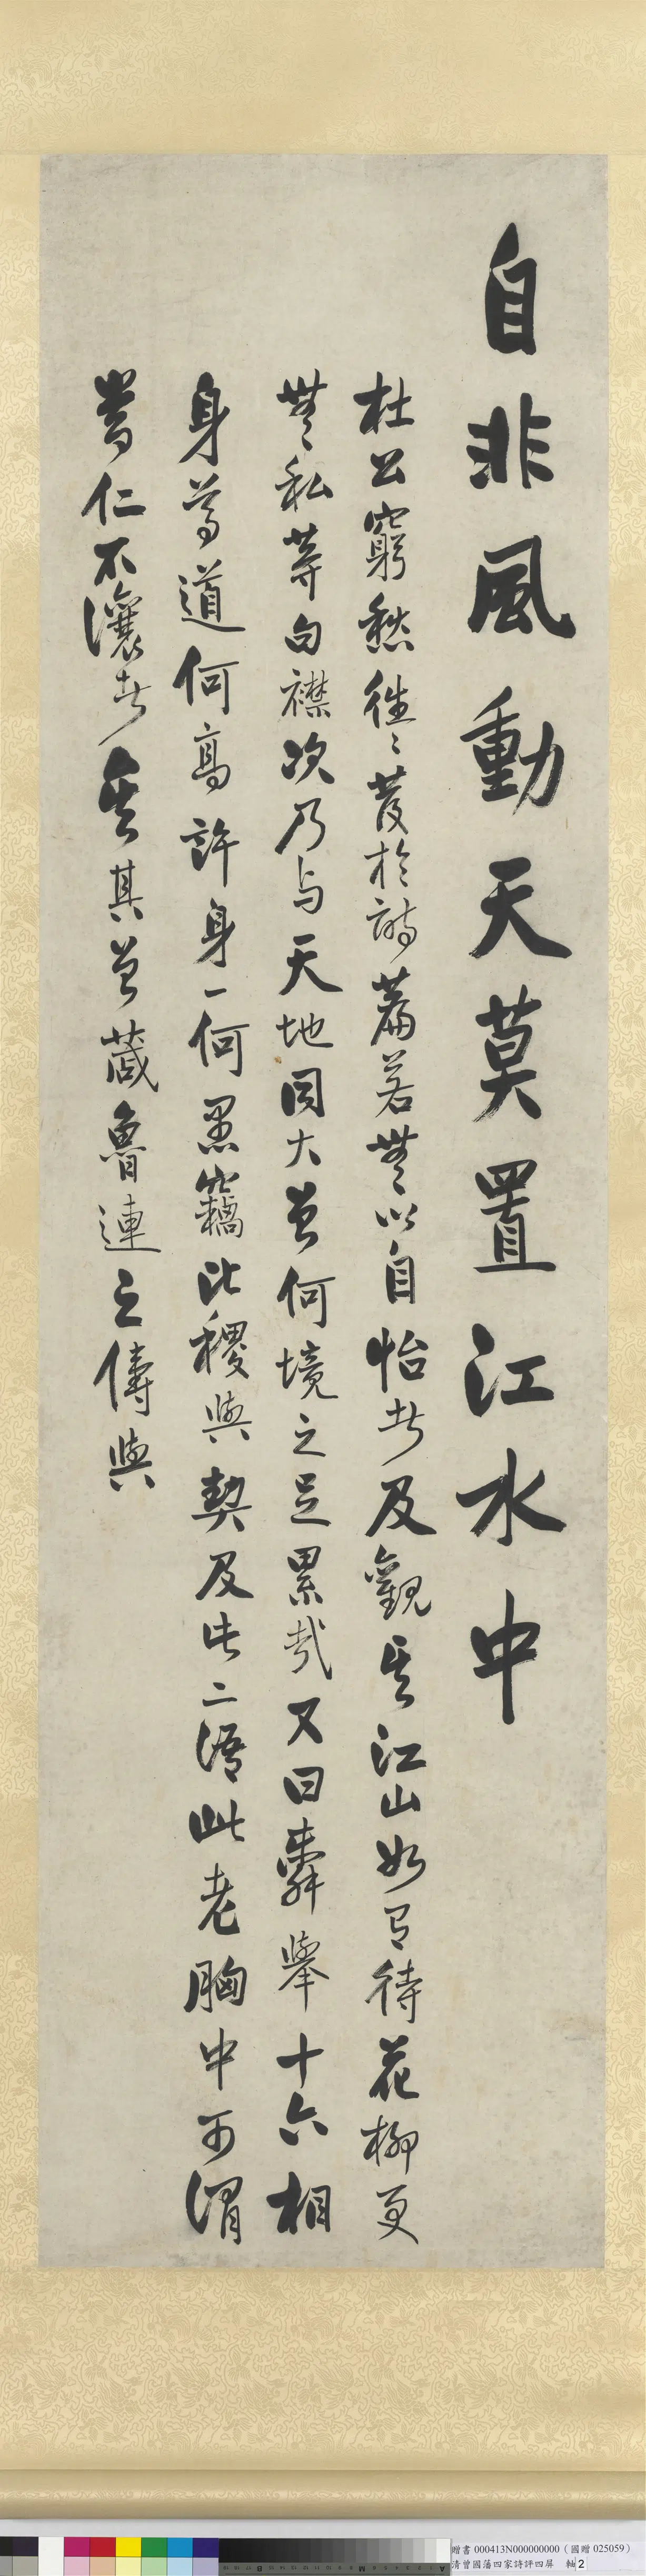 自非風動天莫置江水中
杜公窮愁往〻發於詩篇若無以自怡者及觀其江山如有待花柳更
無私等句襟次乃与天地同大曾何境之足累哉又曰舜舉十六相
身尊道何高許身一何愚竊比稷與契及此二語此老胸中可謂
當仁不讓者矣其曾蒧魯連之儔與
贈書 000413N000000000（國贈 025059）
清曾國藩四家詩評四屏 軸2